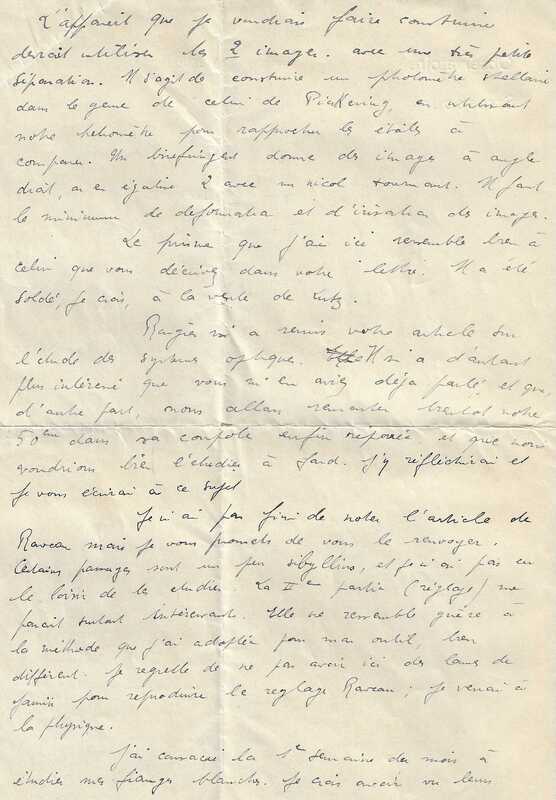 L'appareil que je voudrais faire construire
devrait utiliser les 2 images. avec une très petite
séparation. Il s'agit de construire un photomètre stellaire
dans le genre de celui de Pickering, en utilisant
notre héliomètre pour rapprocher les étoiles à
comparer. Un biréfringent donne des images à angle
droit, on en égalise 2 avec un nicol tournant. Il faut
le minimum de déformation et d'irisation des images.
Le prisme que j'ai ici ressemble bien à
celui que vous décrivez dans votre lettre. Il a été
soldé, je crois, à la vente de Lutz.
m'a remis votre article sur
l'étude des systèmes optiques. Il m'a d'autant
plus intéressé que vous m'en aviez déjà parlé, et que
d'autre part, nous allons remonter bientôt notre
50 cm dans sa coupole enfin réparée et que nous
voudrions bien l'étudier à fond. J'y réfléchirai et
je vous écrirai à ce sujet
Je n'ai pas fini de noter l'article de
Raveau mais je vous promets de vous le renvoyer.
Certains passages sont un peu sibyllins, et je n'ai pas eu
le loisir de les étudier. La IIème partie (réglage) me
paraît surtout intéressante. Elle ne ressemble guère à
la méthode que j'ai adoptée pour mon outil, bien
différent. Je regrette de ne pas avoir ici des lames de
Jamin pour reproduire le réglage Raveau ; je verrai à
la physique.
J'ai consacré la 1e semaine du mois à
étudier mes franges blanches. Je crois avoir vu leurs